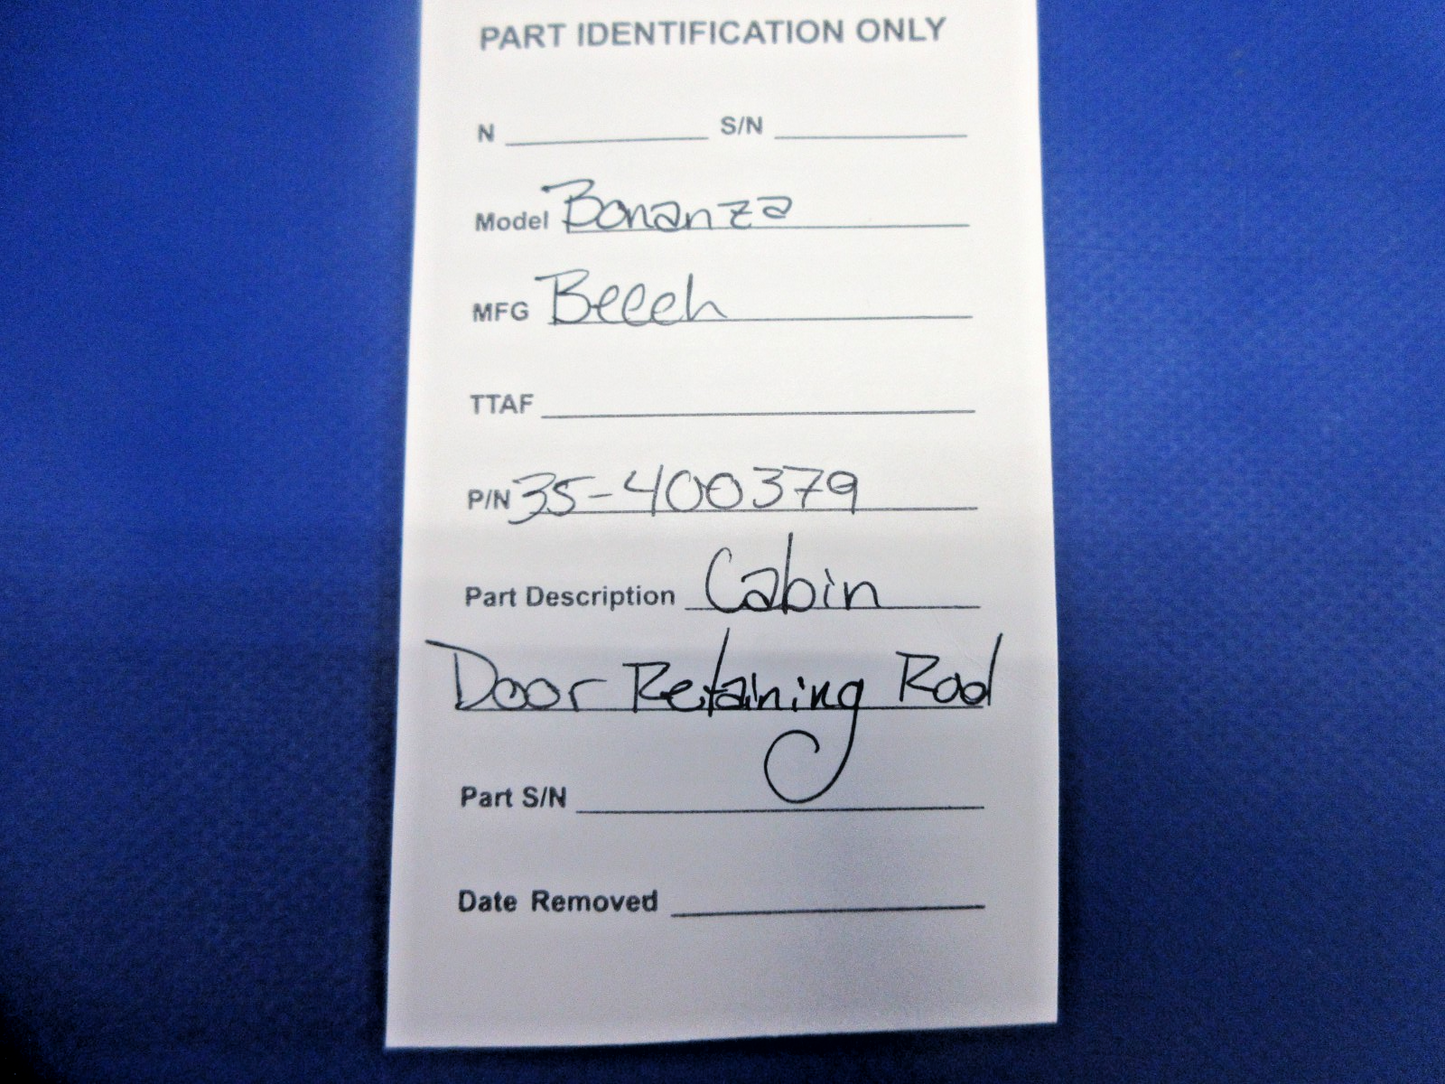 PART IDENTIFICATION ONLY
N S/N
Model Bonanza
MFG Beech
TTAF
P/N 35-400379
Part Description Cabin
Door Retaining Rod
Part S/N
Date Removed